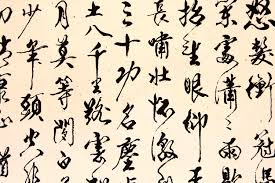 怒髮衝冠
處瀟瀟雨歇
抬望眼仰天
長嘯壯懷激
三十功名塵
土八千里路雲
月莫等閒白
少年頭空